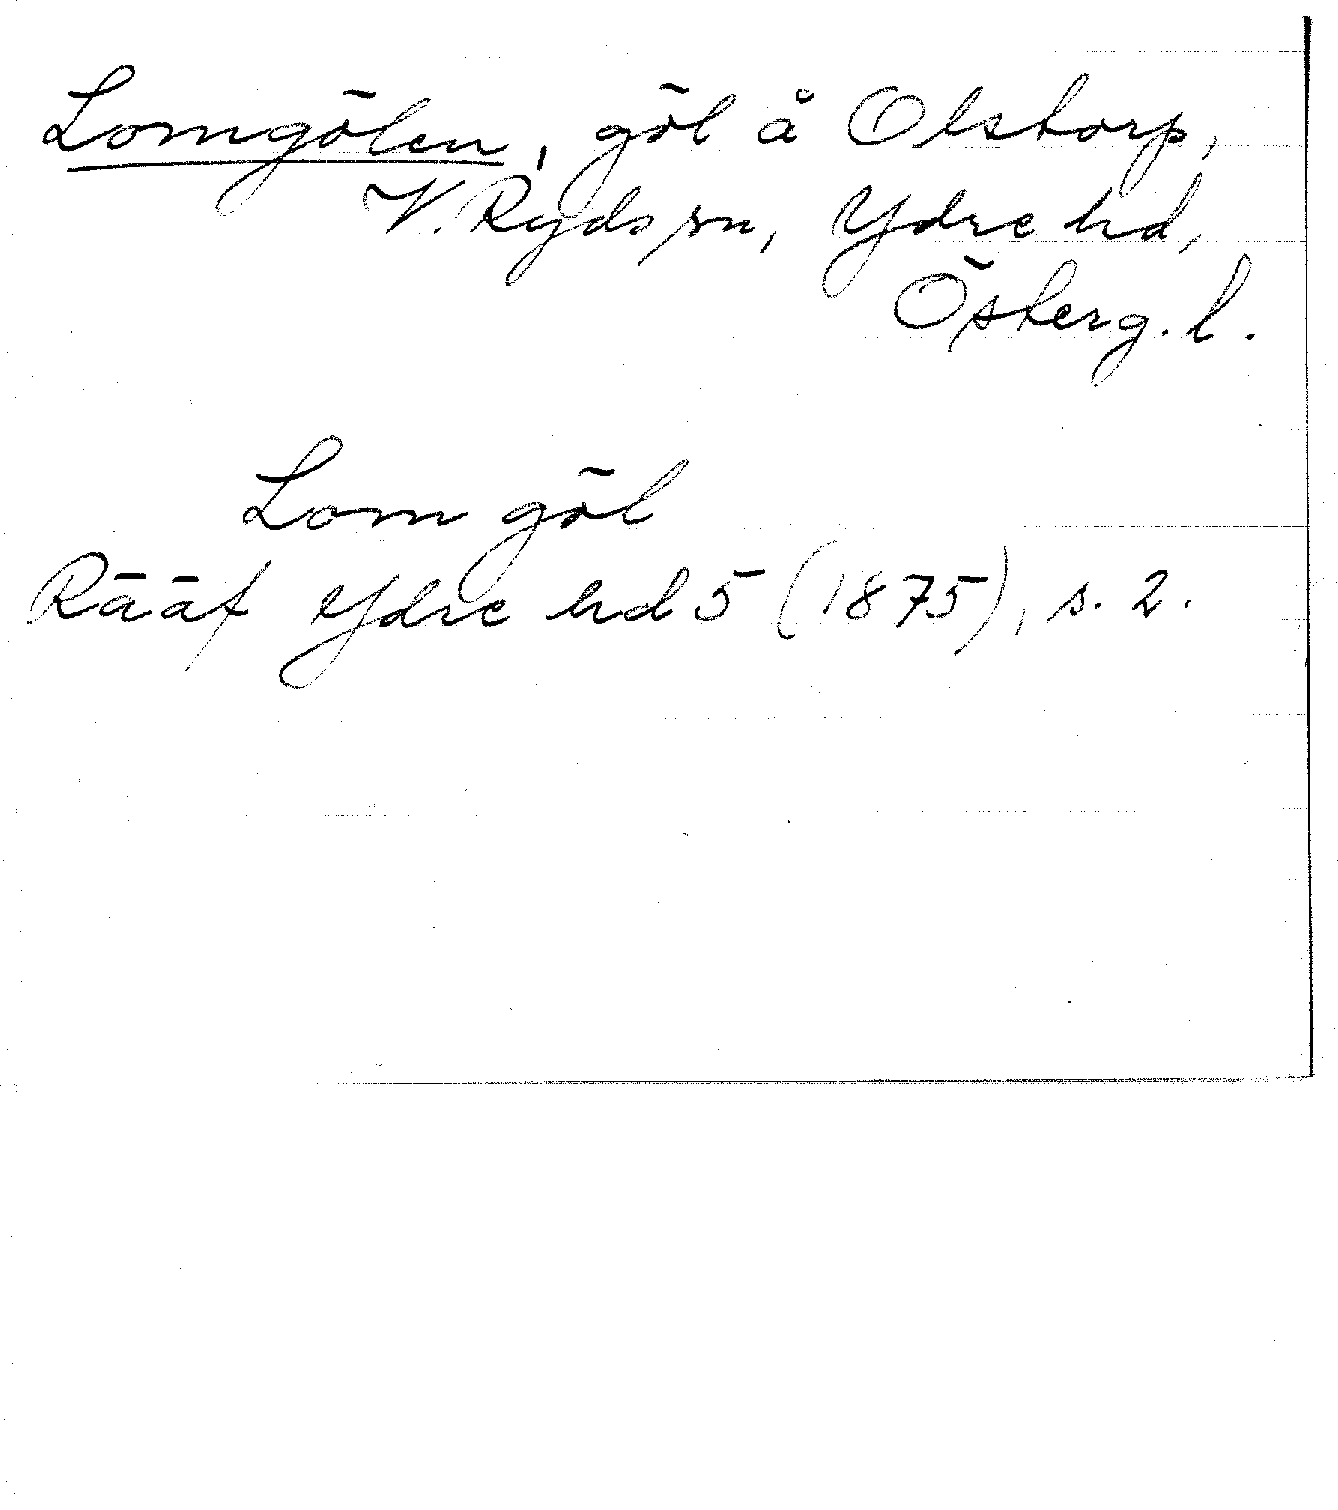 Lomgölen, göl å Olstorp,
V. Ryds sn, Ydre hd,
Österg. l.
Lom göl
Rääf Ydre hd 5 (1875), s. 2.